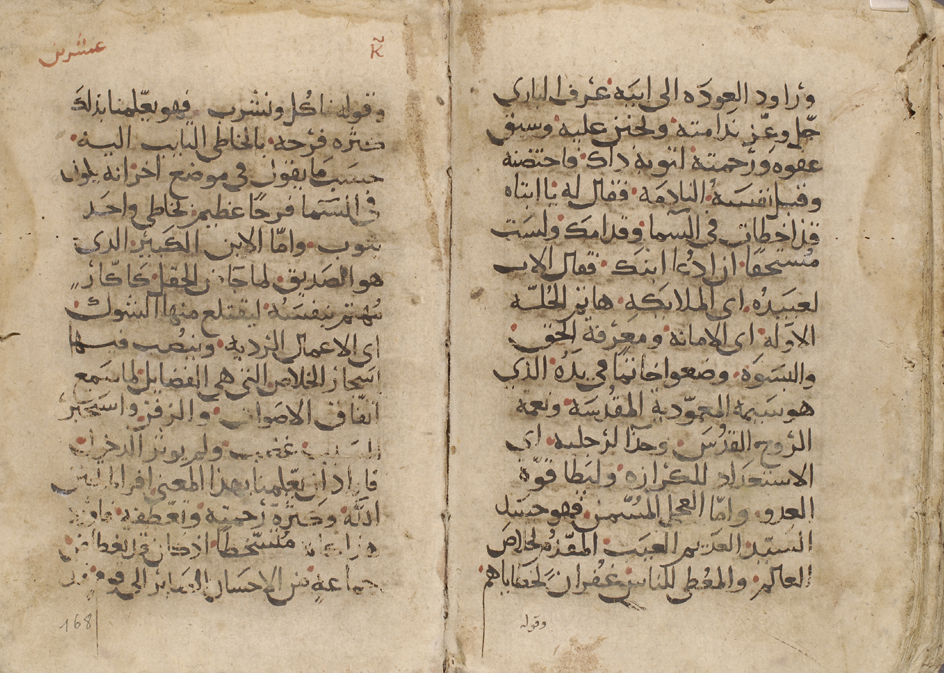 وأراود العوده الى ابيه عرف الباري
جل وعز ندامته وتحنن عليه وسبق
عفوه ورحمته لتوبة ذاك فاحتضنه
وقبل نفسه النادمه فقال له يا ابتاه
قد اخطات في السما وقدامك ولست
مستحقا ان ادعا ابنك فقال الاب
لعبيده اي الملايكه هاتم الحلة
الاوله اي الامانه ومعرفة الحق
وضعوا خاتما في يده الذي
هو سيمة المعمودية المقدسة ونعمة
الروح القدس وحذا لرجليه اي
الاستعداد للكرازه وليطا قوة
العدو واما العجل المسمن فهو جسد
السيد العديم العيب المقدم لخلاص
العالم والمعطى للناس غفران لخطاياهم
وقوله
عشرين
وقوله ناكل ونشرب فهو يعلمنا بذلك
كثرة فرحه بالخاطي التايب اليه
حسب ما يقول في موضع اخر انه يكون
في السما فرحا عظيم بخاطي واحد
يتوب واما الابن الكبير الذي
هو الصديق لما جا من الحقل كما كان
يهتم بنفسه ليقتلع منها الشوك
اي الاعمال الرديه وينصب فيها
اشجار الخلاص التي هي الفضايل لما سمع
اتفاق الاصوات والزفن واستخبر
غضب ولم يوثر الدخول
فاراد ان يعلمنا بهذا المعنى افراط
الله وكثرة رحمته وتعطفه
مستخطا اذ كان قد
جماعة من الاحسان الى
168